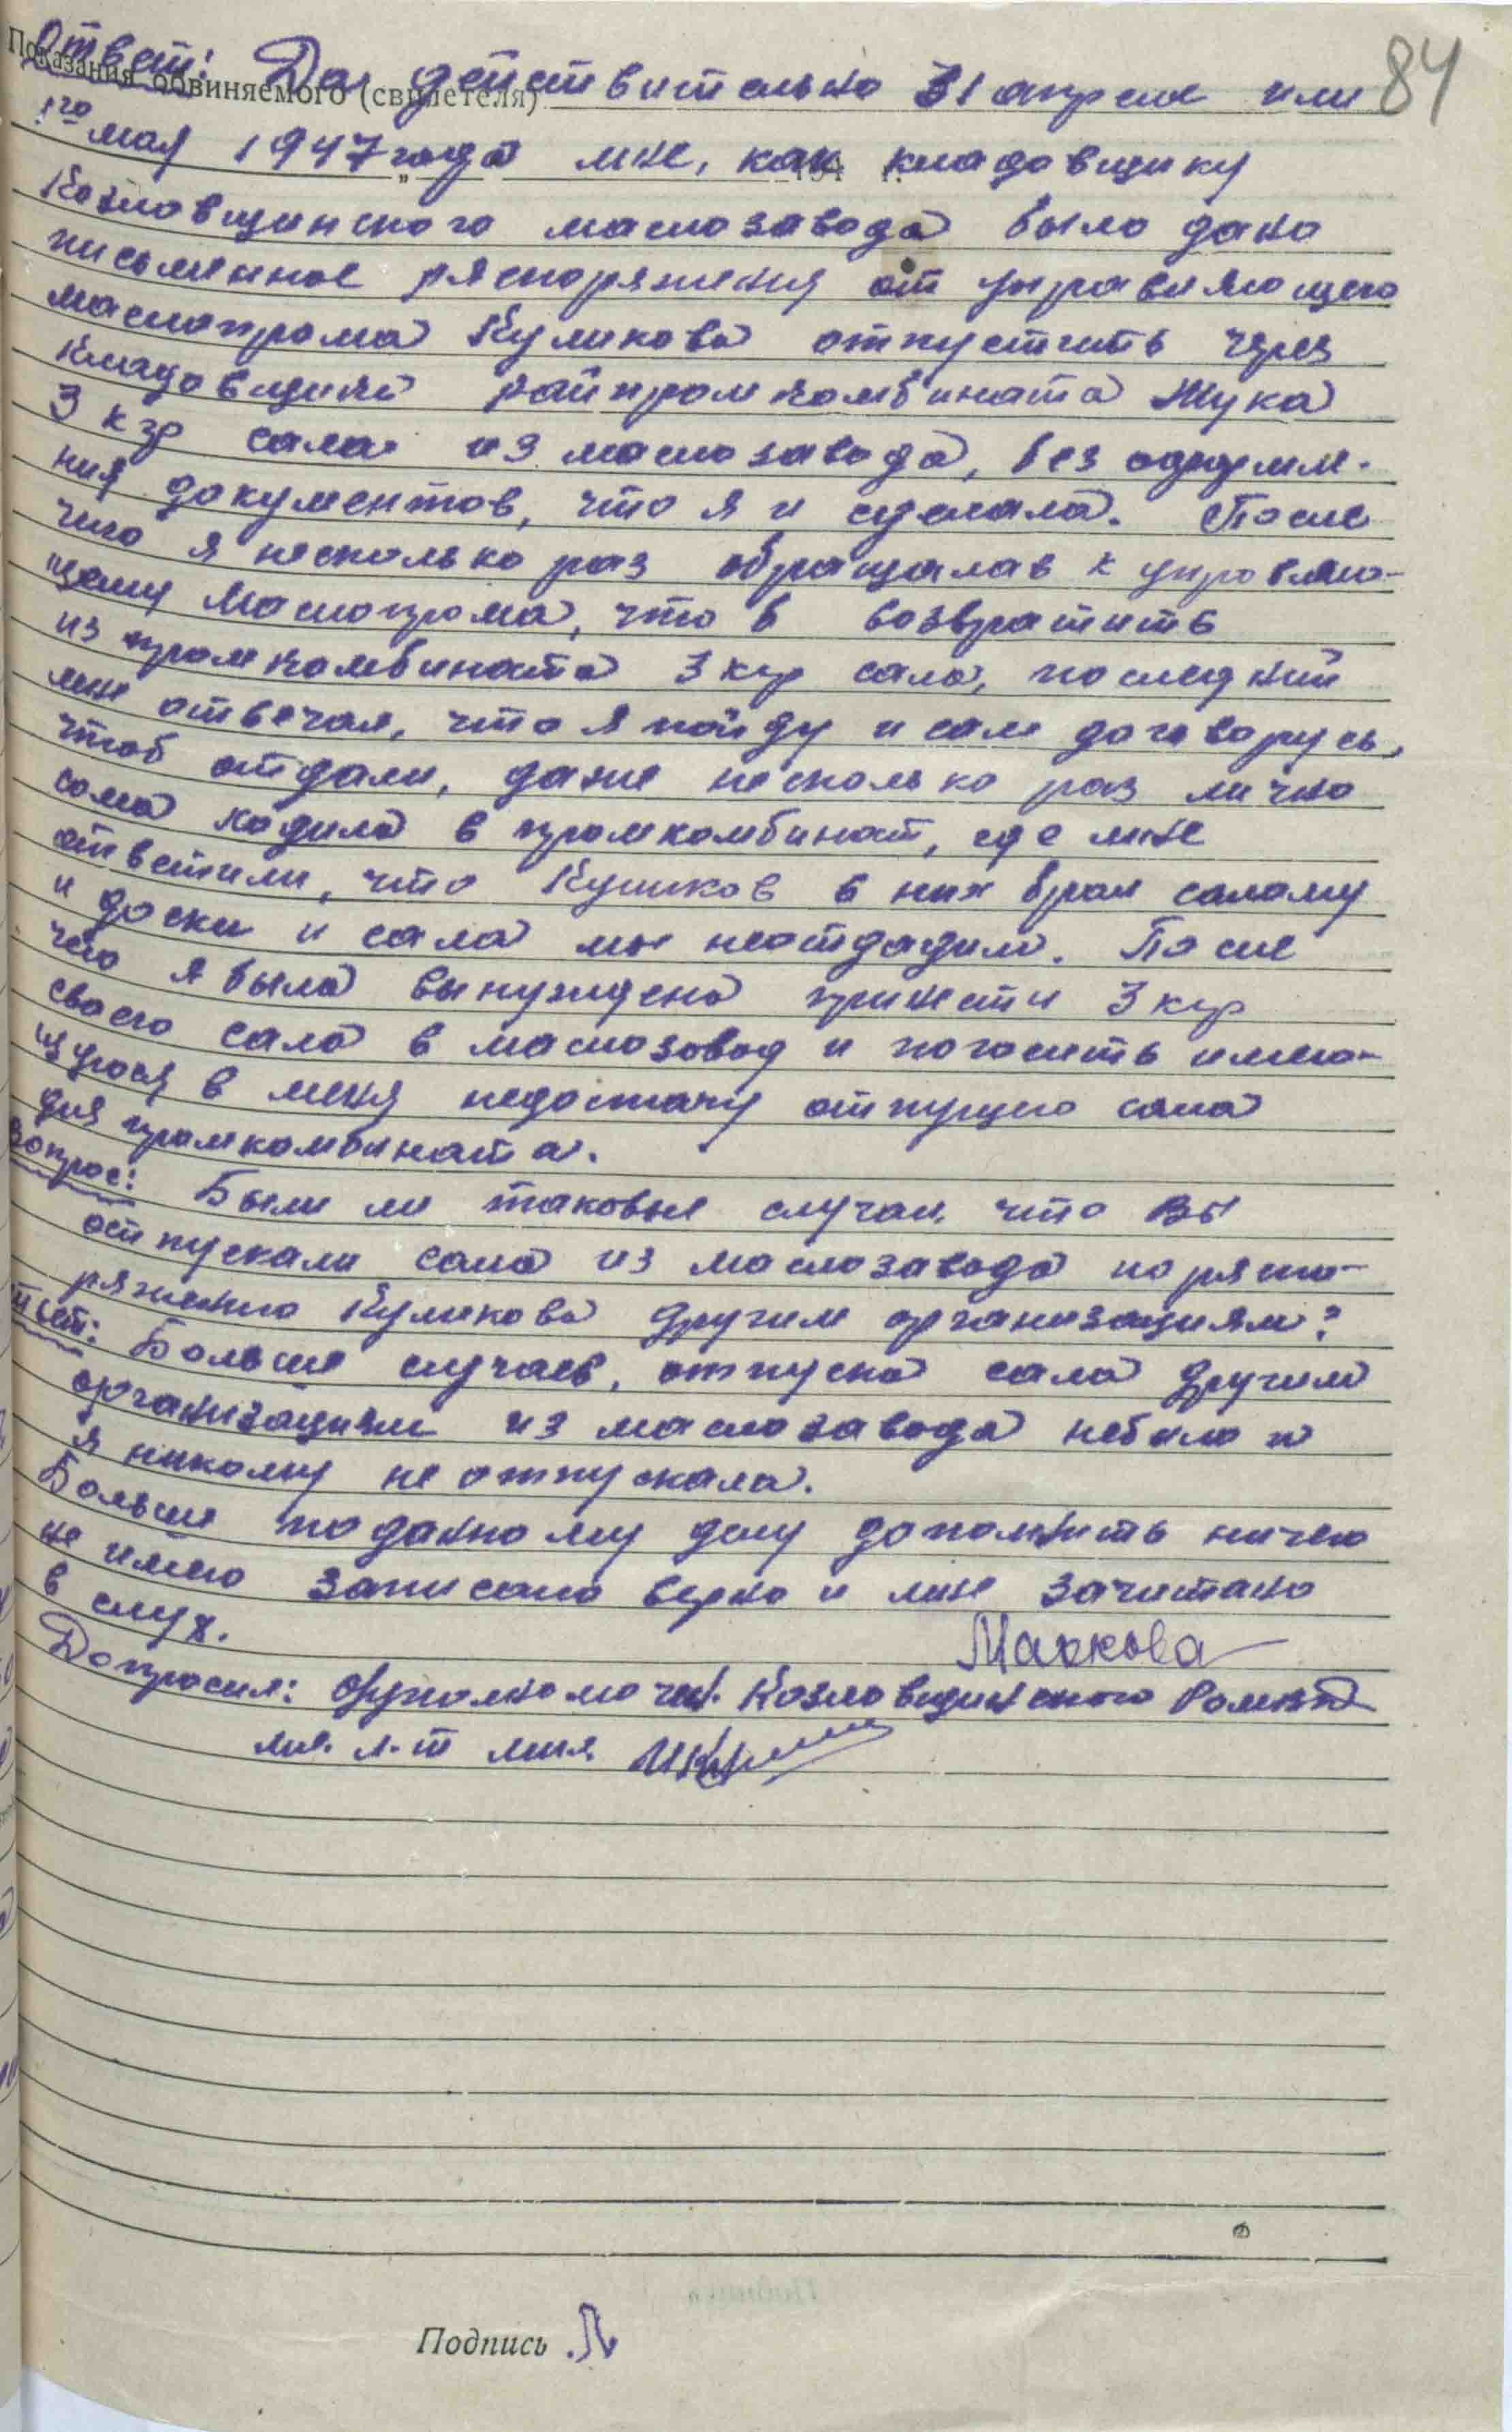 84
Показания обвиняемого (свидетеля)
Ответ: Да действительно 31 апреля или
1го мая 1947 года мне, как кладовщику
Козловщинского маслозавода было дано
письменное ряспоряжения от управляющего
маслопрома Куликова отпустить через
кладовщика райпромкомбината Жука
3 кгр сала из маслозавода, без
ния документов, что я и сделала. После
чего я несколько раз обращалав к управляю-
щему маслопрома, что в возвратить
из промкомбината 3 кгр сала, последний
мне отвечал, что я пойду и сам договорусь,
чтоб отдали, даже несколько раз лично
сама ходила в промкомбинат, где мне
ответили, что Куликов в них брал салому
и доски и сала мы неотдадим. После
чего я была вынуждена принести 3 кгр
своего сала в маслозавод и погосить имею-
щуюся в меня недостачу отпущено сала
для промкомбината.
Вопрос: Были ли таковые случаи, что Вы
отпускали сала из маслозавода по распо-
ряжению Куликова другим организациям?
Ответ: Больше случаев, отпуска сала другим
организациям из маслозавода небыло и
я никому не отпускала.
Больше по данному делу дополнить ничего
не имею записано верно и мне зачитано
в слух.
Маркова
Допросил: Козловщинского
мл. л-т мил.
Подпись